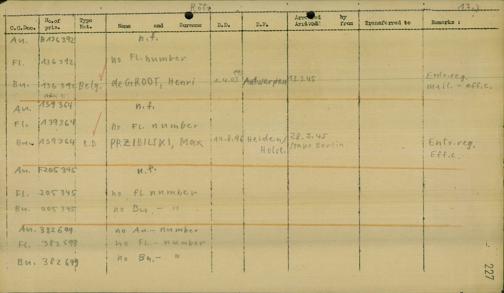 17.3
C.C.Doc. No. of pris. Type Nat. Name and Surname D.D. D.P. Arrested Arrived by from Transferred to Remarks:
Au. n.f.
Fl. 136392 no FL. number
Bu. 136392 Belg. de GROOT, Henri Antwerpen Entr.reg.
mail. - eff. c.
Au. 139364 n.f.
Fl. 139364 no FL. number
Bu. 139364 PRZIBILSKI, Max Heiden/ 28.2.45 Entr.reg.
Holst. Eff.c.
Au. n.f.
Fl. 205345 no FL number
Bu. 205345 no Bu. - "
Au. 382699 no Au - number
Fl. 382699 no FL - number
Bu. 382699 no Bu. - "
227